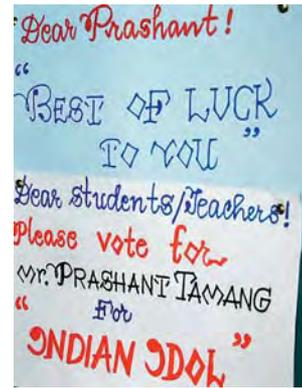 Dear Prashant!
“
BEST OF LUCK
TO YOU ”
Dear Students/Teachers!
please vote for
mr. PRASHANT TAMANG
For
“ INDIAN IDOL ”